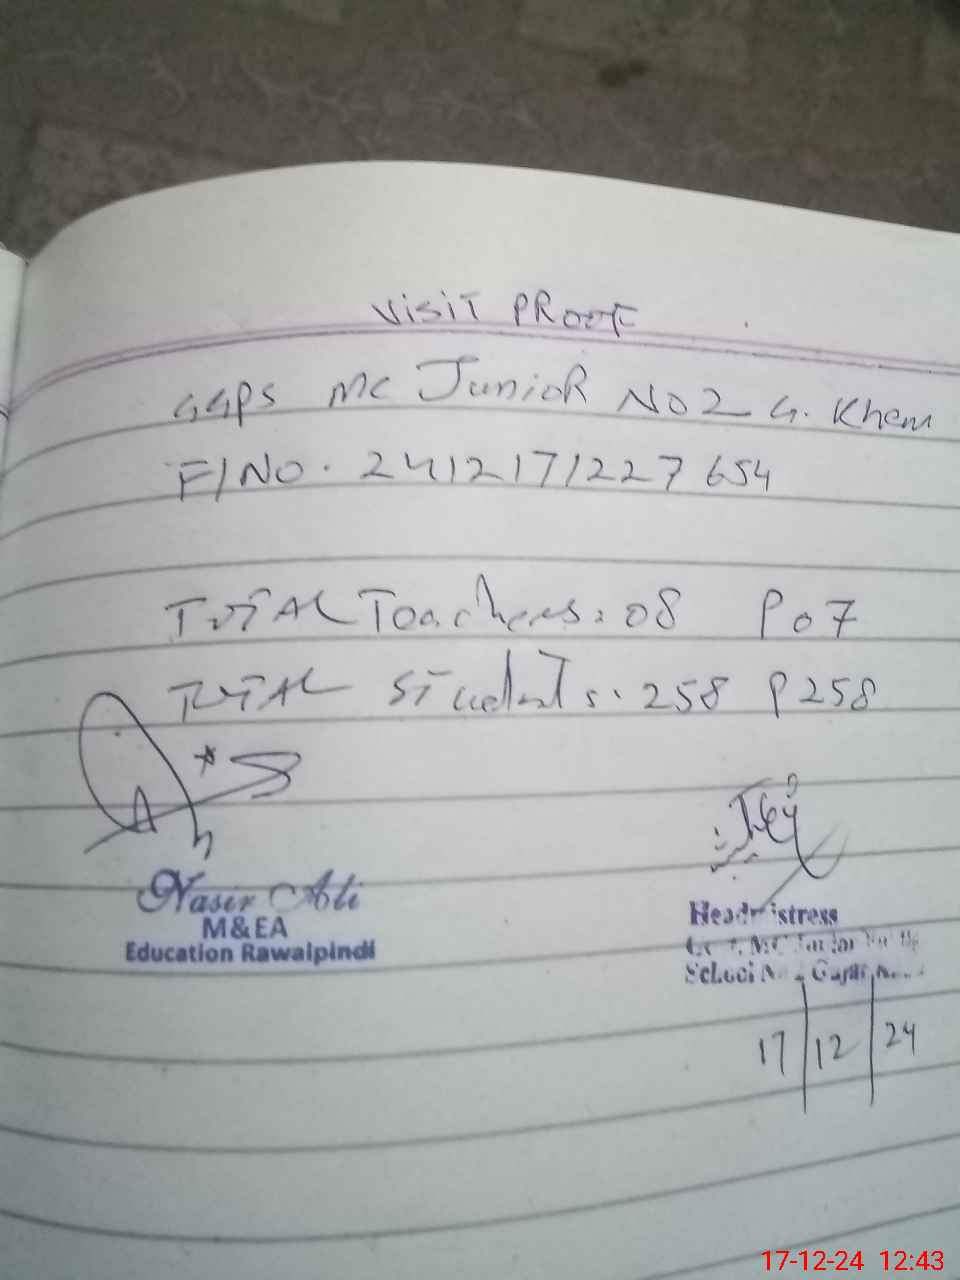 VISIT PROOF
GGPS MC JunioR NO 2 G. Khan
F/NO. 2412171227654
TOTAL Teachers: 08 P 07
TOTAL Students. 258 P 258
Nasir Ali
M&EA
Education Rawalpindi
Headmistress
MC Junior
School No 2 Gujar
17 12 24
17-12-24 12:43